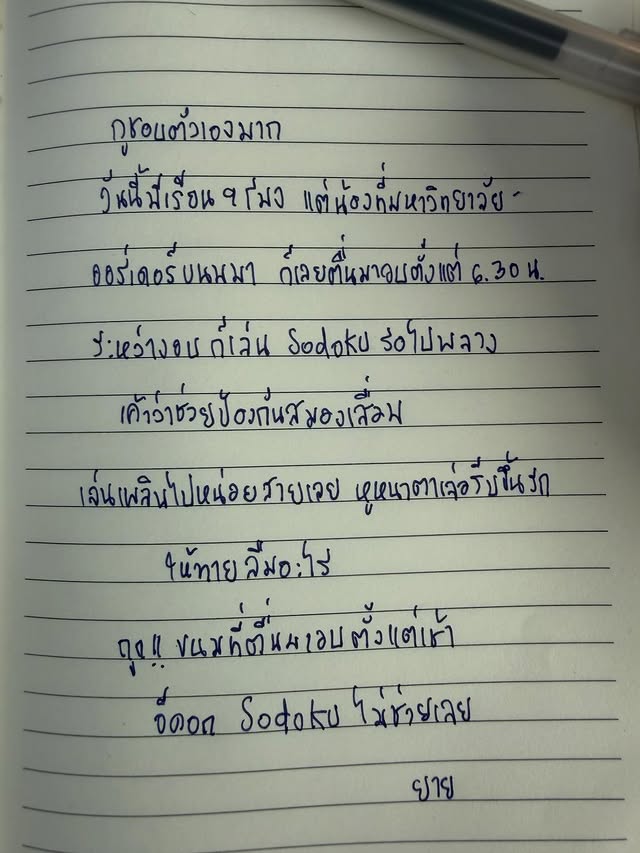 กูชอบตัวเองมาก
วันนี้มีเรียน 9 โมง แต่น้องที่มหาวิทยาลัย -
ออร์เดอร์ขนมมา ก็เลยตื่นมาอบตั้งแต่ 6.30 น.
ระหว่างอบ ก็เล่น Sodoku รอไปพลาง
เค้าว่าช่วยป้องกันสมองเสื่อม
เล่นเพลินไปหน่อยสายเลย หูหนาตาเล่อรีบขึ้นรถ
ให้ทาย ลืมอะไร
ถูก!! ขนมที่ตื่นมาอบตั้งแต่เช้า
อีดอก Sodoku ไม่ช่วยเลย
ยาย